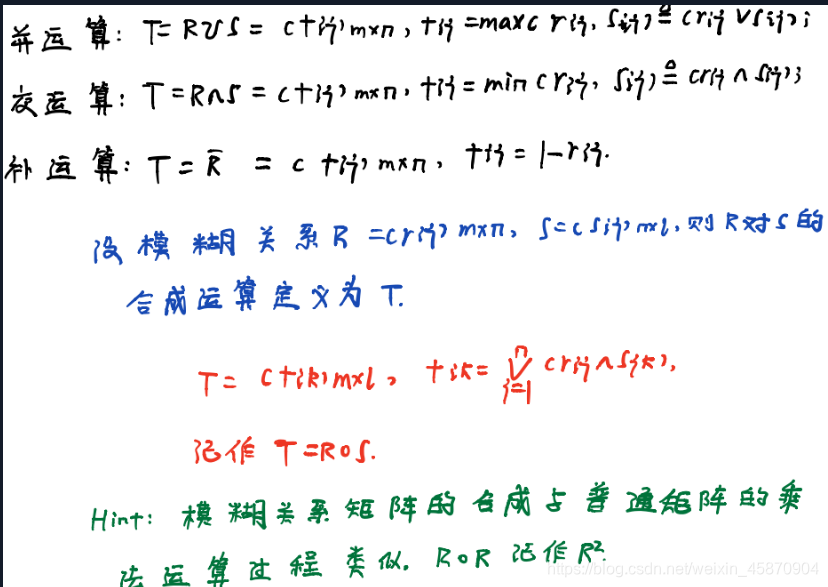 并运算: T=R∪S = (tij)m×n, tij=max(rij, sij)≜(rij∨sij);
交运算: T=R∩S=(tij)m×n, tij=min(rij, sij)≜(rij∧sij);
补运算: T=R̄ = (tij)m×n, tij=1-rij.
设模糊关系R=(rij)m×n, S=(sij)m×l,则R对S的
合成运算定义为T.
T=(tik)m×l, tik=∨ⁿj=1(rij∧sjk),
记作 T=R∘S.
Hint: 模糊关系矩阵的合成与普通矩阵的乘
法运算过程类似. R∘R记作R².
https://blog.csdn.net/weixin_45870904